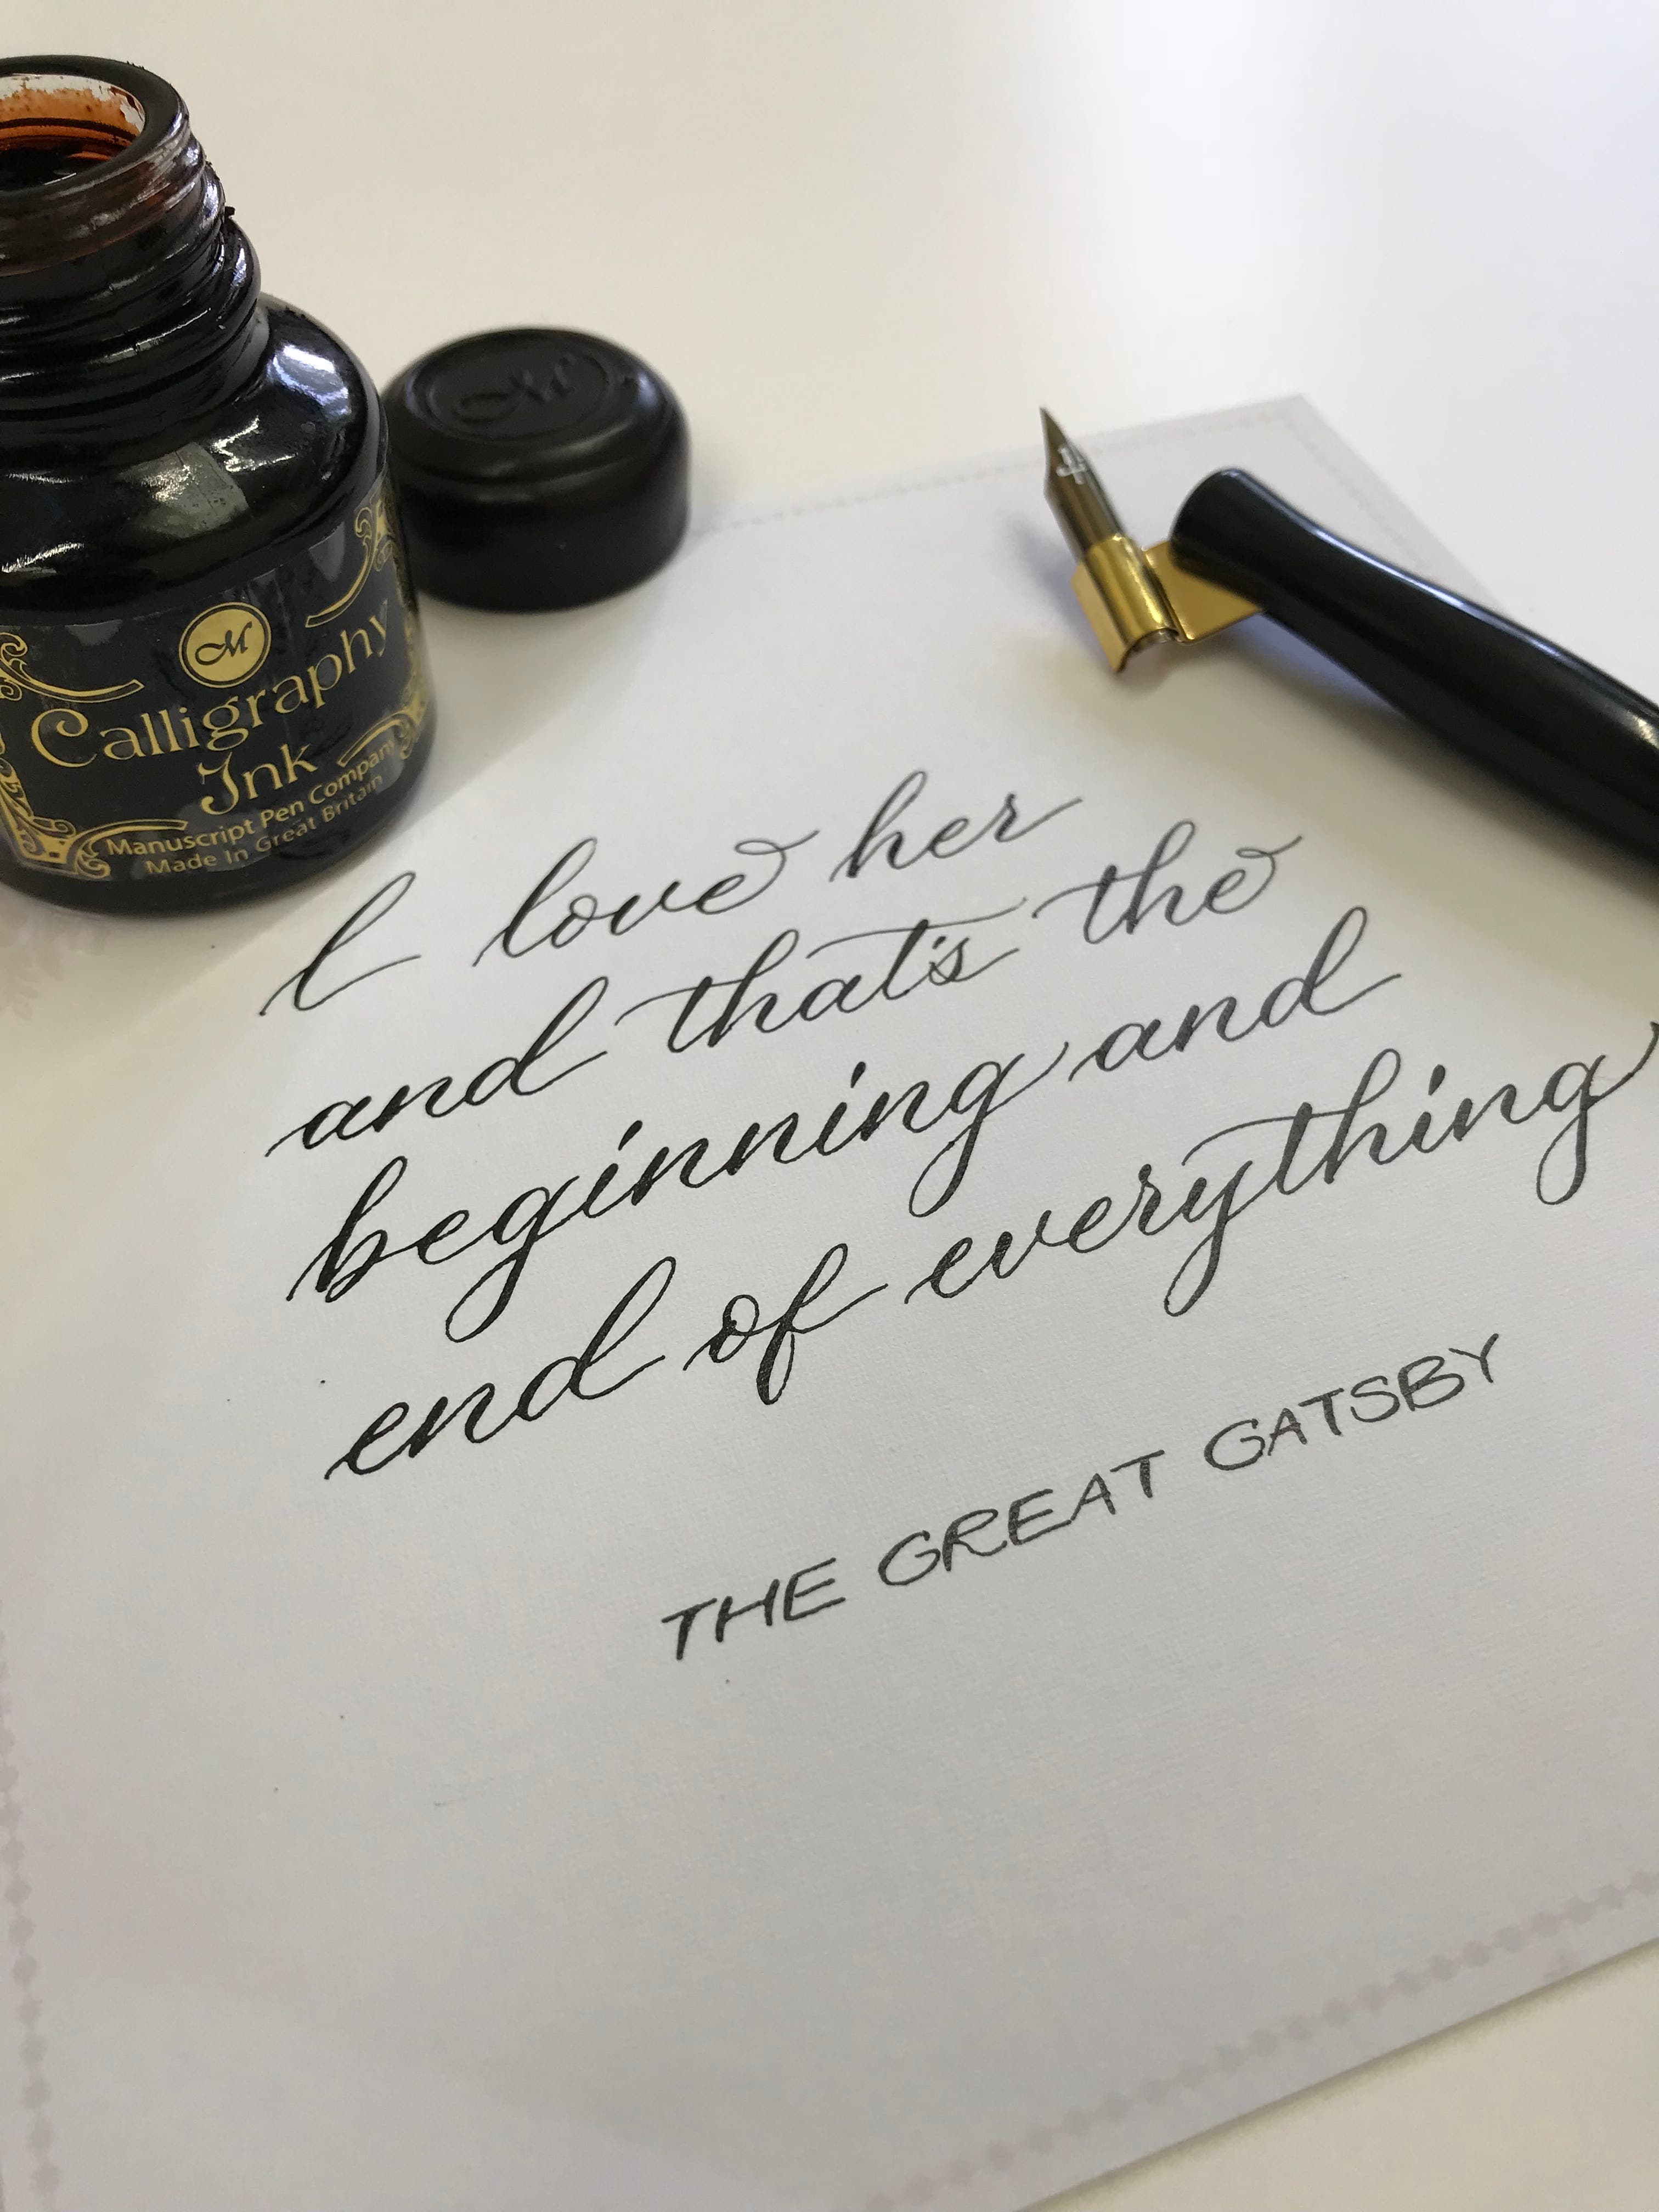 M
Calligraphy
Ink
Manuscript Pen Company
Made In Great Britain
M
I love her
and that's the
beginning and
end of everything
THE GREAT GATSBY